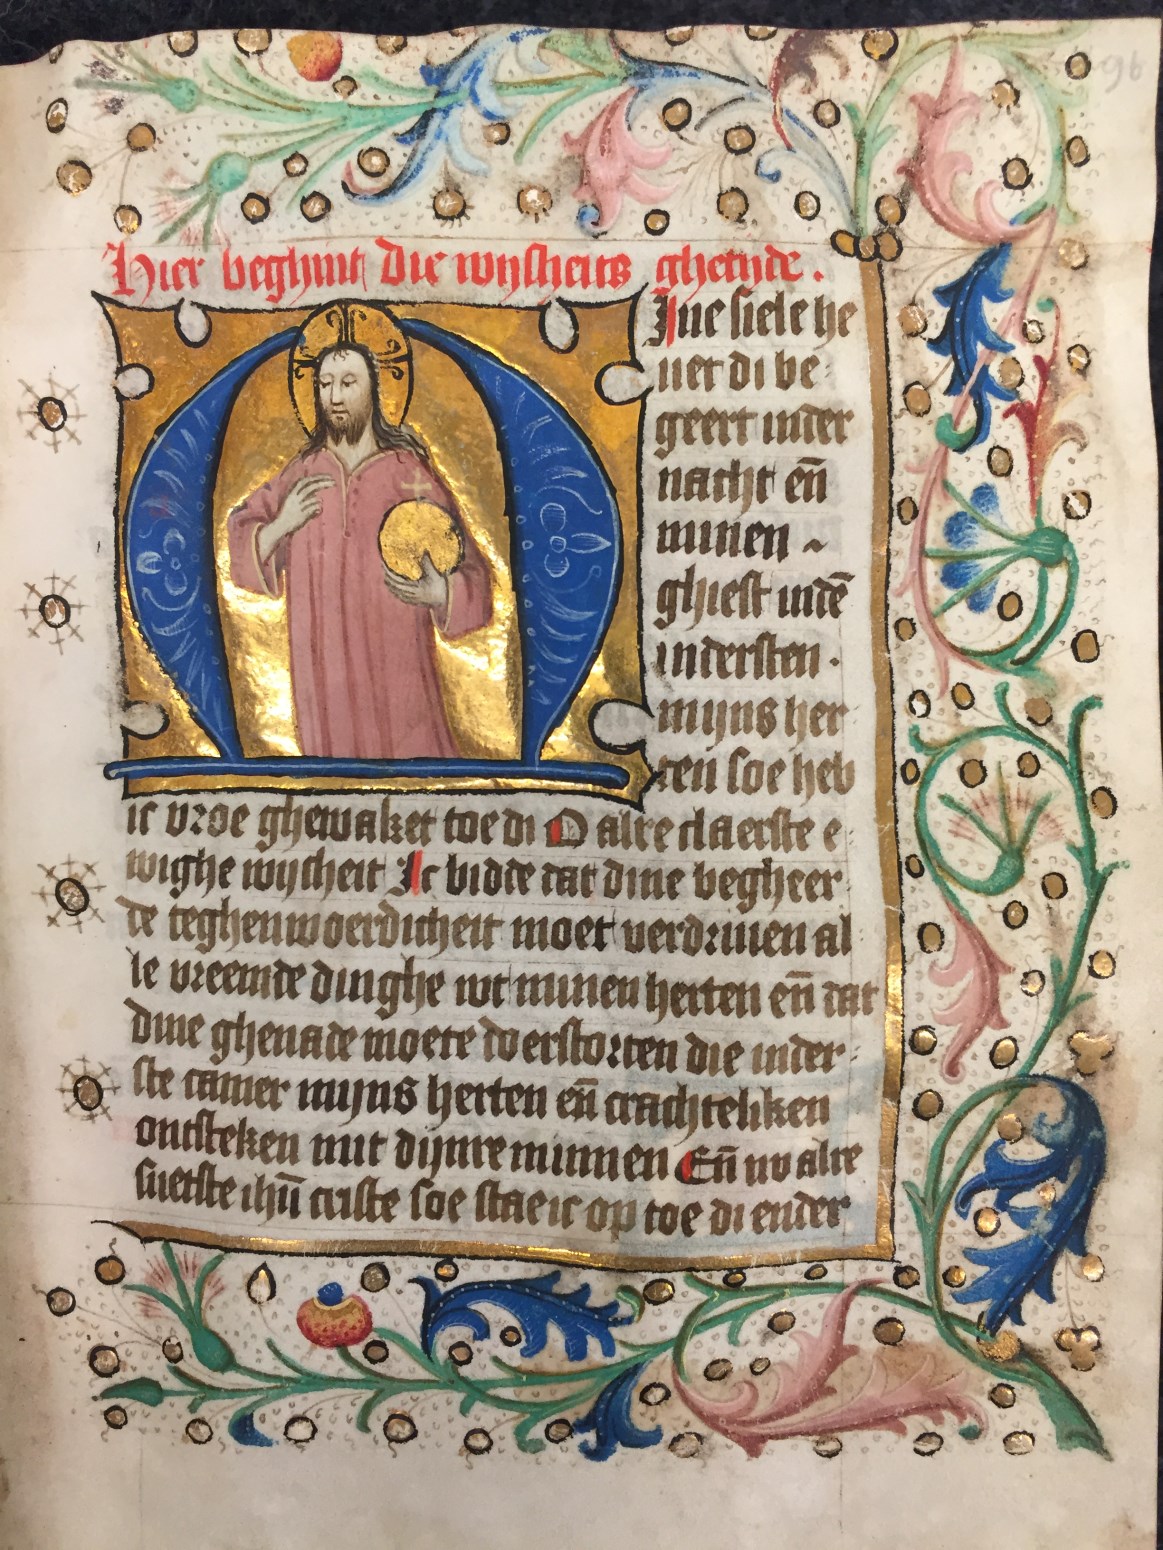 96
Hier beghint die wijsheits ghetijde.
M Ine siele he
uet di be-
geert inder
nacht eñ
minen ~
ghiest indē
indersten.
mijns her
ten soe heb
ic vroe ghewaket toe di O alre claerste e-
wighe wijsheit Ic bidde dat dine begheer-
de teghenwoerdicheit moet verdriuen al-
le vreemde dinghe wt minen herten eñ dat
dine ghenade moete doerstorten die inder-
ste camer mijns herten eñ crachteliken
ontsteken mit dijnre minnen Eñ nv alre
suetste ihū criste soe stae ic op toe di ender